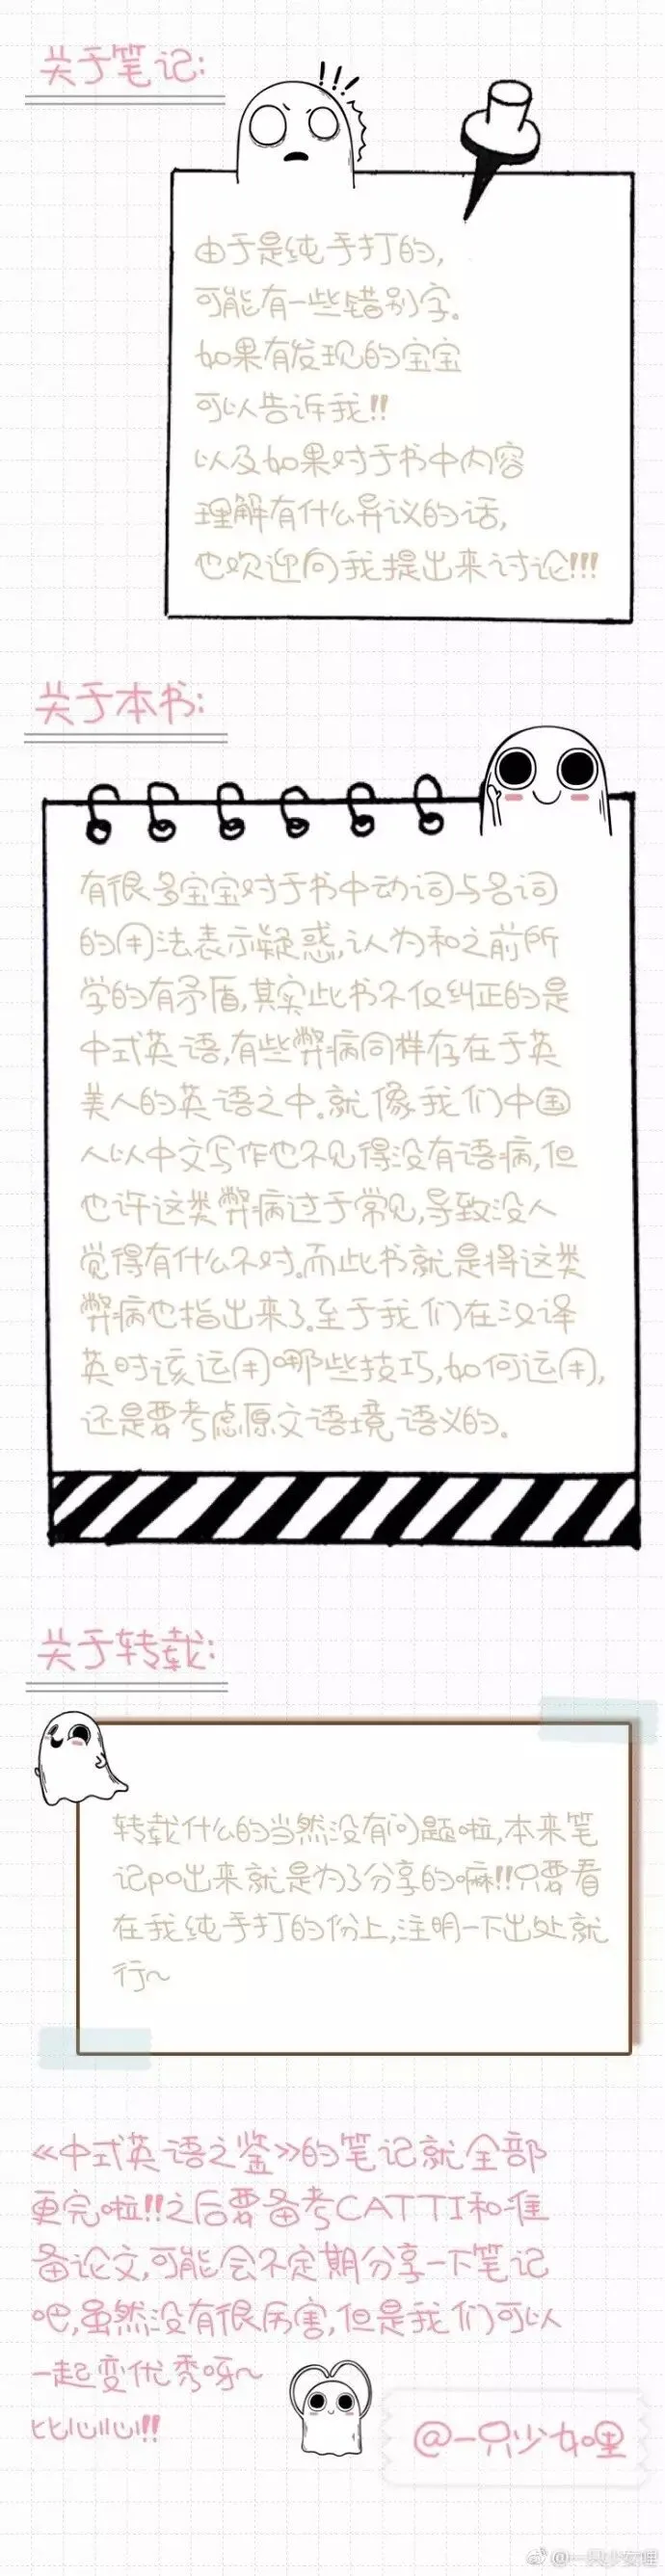 关于笔记:
由于是纯手打的,
可能有一些错别字。
如果有发现的宝宝
可以告诉我!!
以及如果对于书中内容
理解有什么异议的话,
也欢迎向我提出来讨论!!!
关于本书:
有很多宝宝对于书中动词与名词
的用法表示疑惑,认为和之前所
学的有矛盾,其实此书不仅纠正的是
中式英语,有些弊病同样存在于英
美人的英语之中。就像我们中国
人以中文写作也不见得没有语病,但
也许这类弊病过于常见,导致没人
觉得有什么不对。而此书就是将这类
弊病也指出来了。至于我们在汉译
英时该运用哪些技巧,如何运用,
还是要考虑原文语境语义的。
关于转载:
转载什么的当然没有问题啦,本来笔
记po出来就是为了分享的嘛!!只要看
在我纯手打的份上,注明一下出处就
行~
《中式英语之鉴》的笔记就全部
更完啦!!之后要备考CATTI和准
备论文,可能会不定期分享一下笔记
吧,虽然没有很厉害,但是我们可以
一起变优秀呀~
比心心心!!
@一只少女哩
@一只少女哩